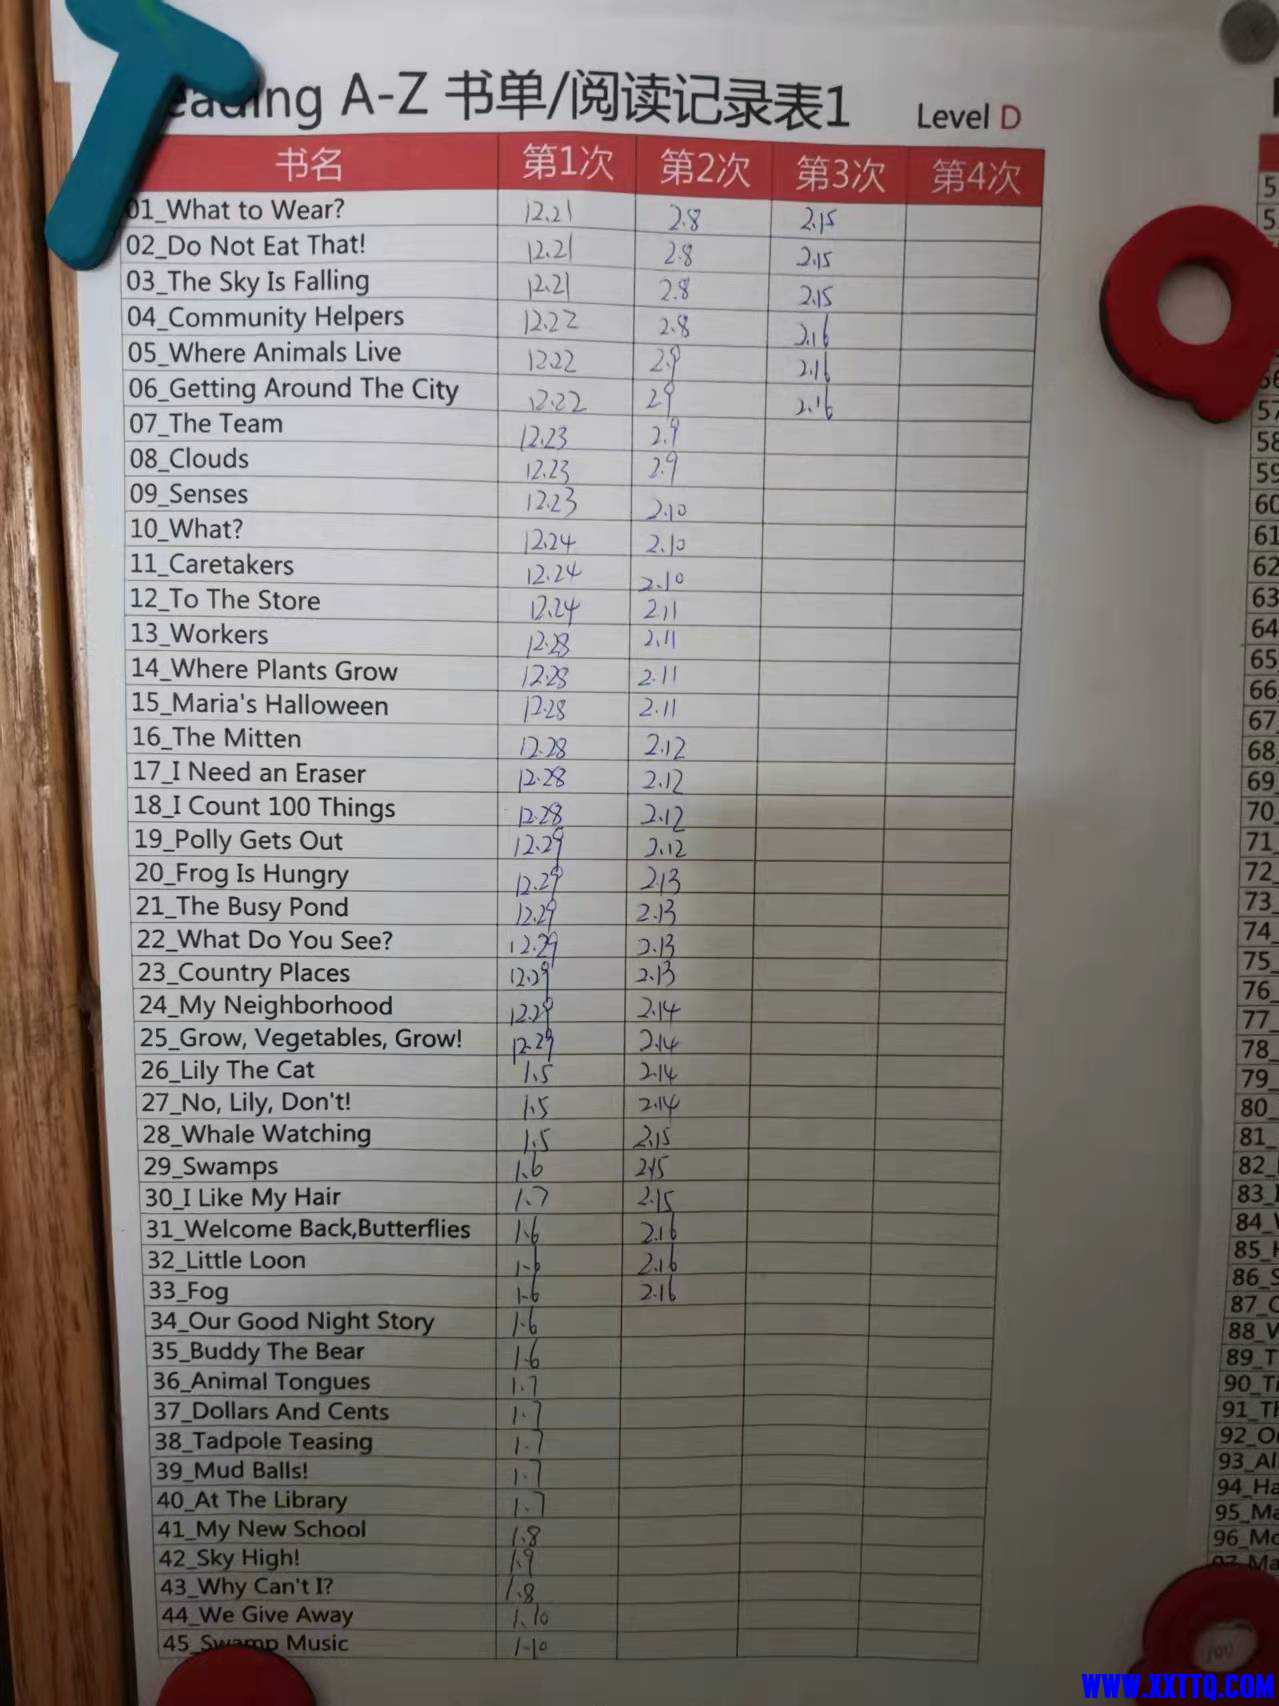 eading A-Z 书单/阅读记录表1 Level D
书名 第1次 第2次 第3次 第4次
01_What to Wear? 12.21 2.8 2.15
02_Do Not Eat That! 12.21 2.8 2.15
03_The Sky Is Falling 12.21 2.8 2.15
04_Community Helpers 12.22 2.8 2.16
05_Where Animals Live 12.22 2.9 2.16
06_Getting Around The City 12.22 2.9 2.16
07_The Team 12.23 2.9
08_Clouds 12.23 2.9
09_Senses 12.23 2.10
10_What? 12.24 2.10
11_Caretakers 12.24 2.10
12_To The Store 12.24 2.11
13_Workers 12.28 2.11
14_Where Plants Grow 12.28 2.11
15_Maria's Halloween 12.28 2.11
16_The Mitten 12.28 2.12
17_I Need an Eraser 12.28 2.12
18_I Count 100 Things 12.28 2.12
19_Polly Gets Out 12.29 2.12
20_Frog Is Hungry 12.29 2.13
21_The Busy Pond 12.29 2.13
22_What Do You See? 12.29 2.13
23_Country Places 12.29 2.13
24_My Neighborhood 12.29 2.14
25_Grow, Vegetables, Grow! 12.29 2.14
26_Lily The Cat 1.5 2.14
27_No, Lily, Don't! 1.5 2.14
28_Whale Watching 1.5 2.15
29_Swamps 1.6 2.15
30_I Like My Hair 1.7 2.15
31_Welcome Back,Butterflies 1.6 2.16
32_Little Loon 1.6 2.16
33_Fog 1.6 2.16
34_Our Good Night Story 1.6
35_Buddy The Bear 1.6
36_Animal Tongues 1.7
37_Dollars And Cents 1.7
38_Tadpole Teasing 1.7
39_Mud Balls! 1.7
40_At The Library 1.7
41_My New School 1.8
42_Sky High! 1.9
43_Why Can't I? 1.8
44_We Give Away 1.10
45_Swamp Music 1.10
58
59
60
61
62
63
64
65
66
67
68
69
70
71
72
73
74
75
76
77
78
79
80
81
82
83
84
85
86
87
88
89_T
90_Ti
91_Th
92_O
93_Al
94_Ha
95_Ma
96_Mo
WWW.XXTTQ.COM